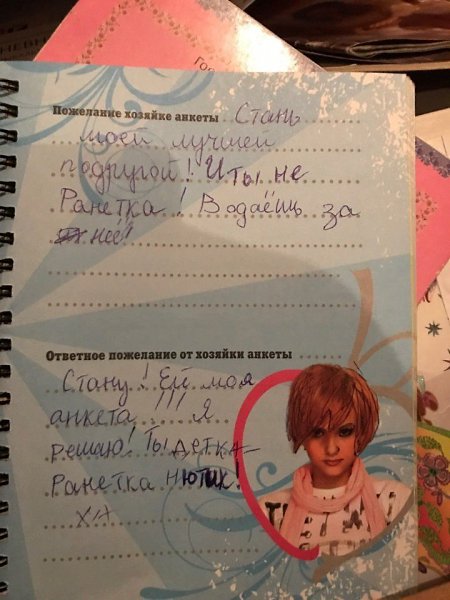 Пожелание хозяйке анкеты Стань
моей лучшей
подругой! И ты не
Ранетка! Водаёшь за
нее!
Ответное пожелание от хозяйки анкеты
Стану! Ей моя
анкета!!! Я
решаю! Ты детка-
Ранетка Нютик!